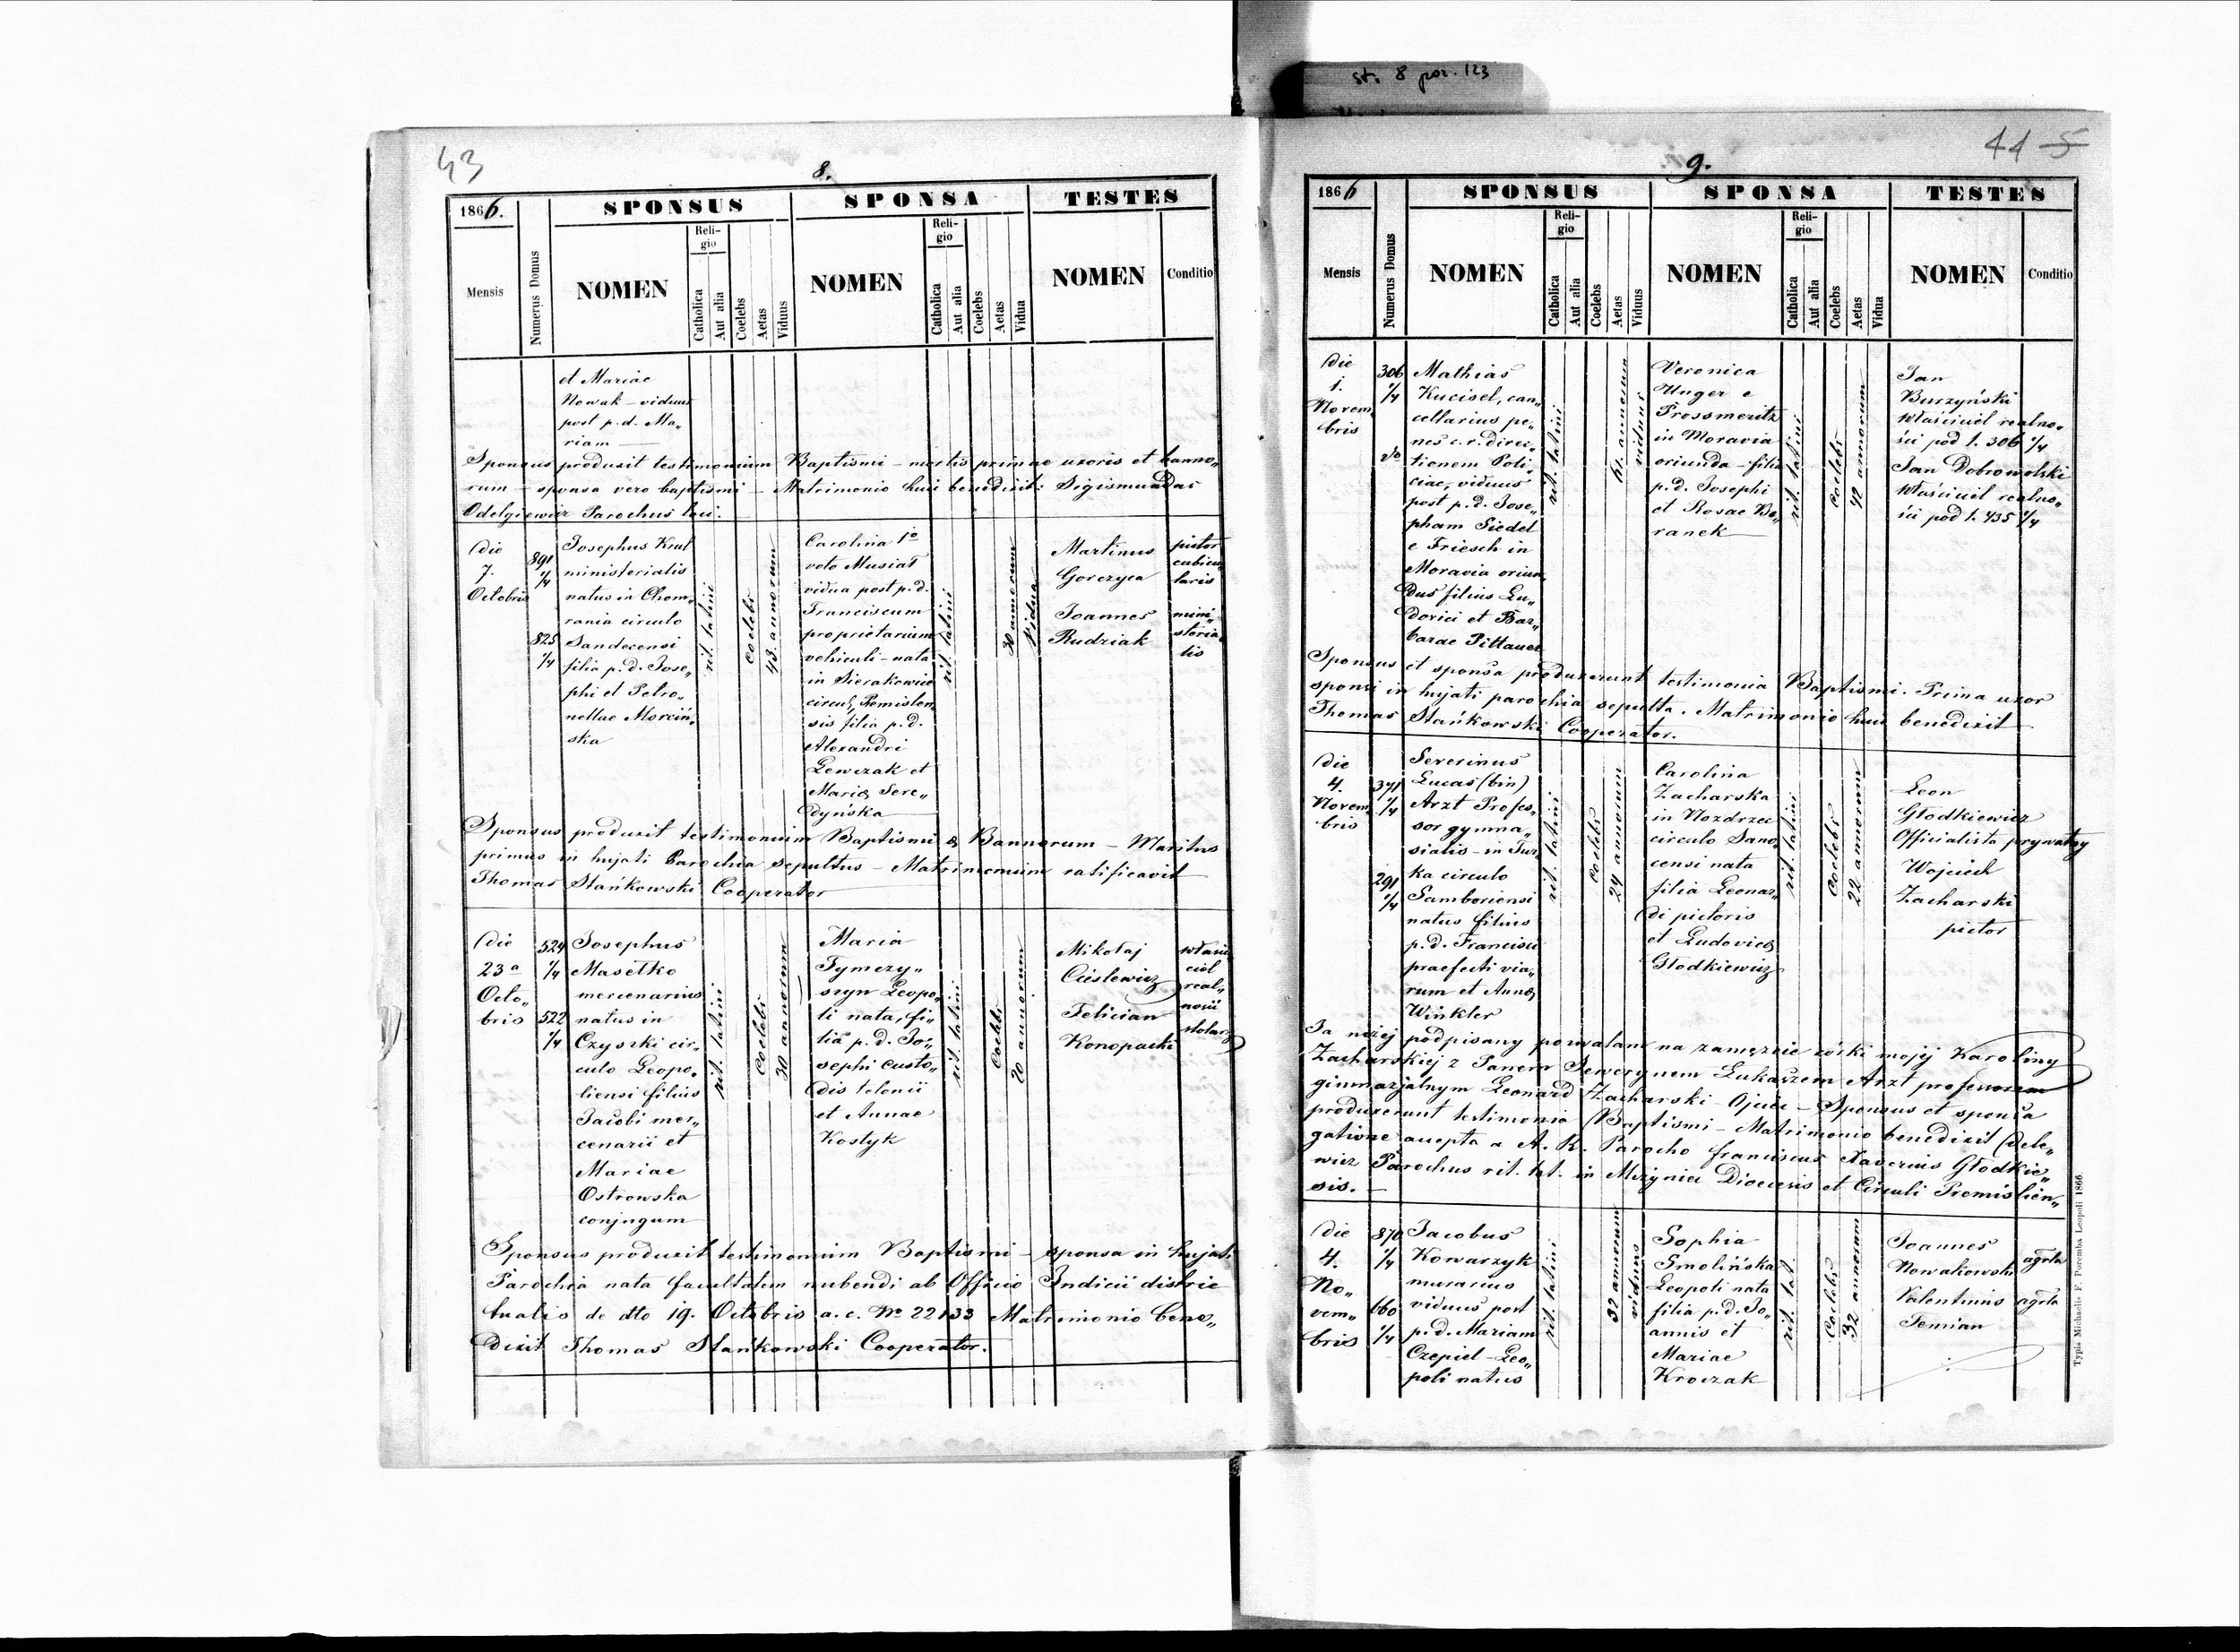 st. 8 poz. 123
43
8.
1866.
SPONSUS
SPONSA
TESTES
Mensis
Numerus Domus
NOMEN
Religio
Catholica
Aut alia
Coelebs
Aetas
Viduus
NOMEN
Religio
Catholica
Aut alia
Coelebs
Aetas
Vidua
NOMEN
Conditio
et Mariae
Nowak – viduus
post p. d. Ma„
riam —
Sponsus produxit testimonium Baptismi – mortis primae uxoris et banno„
rum – sponsa vero baptismi – Matrimonio huic benedixit: Sigismundus
Odelgiewicz Parochus loci.
Die
7.
Octobris
891
1/4
825
1/4
Josephus Krul
ministerialis
natus in Chom„
rania circulo
Sandecensi
filia p. d. Jose„
phi et Petro„
nellae Morciń„
ska
rit. latini
coelebs
43. annorum
Carolina 1º
voto Musiał
vidua post p. d.
Franciscum
proprietarium
vehiculi – nata
in Sierakowice
circul. Premislen„
sis filia p. d.
Alexandri
Lewczak et
Maria Sere„
dyńska
rit. latini
30 annorum
Vidua
Martinus
Gorczyca
Joannes
Rudziak
pictor
cubicu„
laris
mini„
steria„
lis
Sponsus produxit testimonium Baptismi & Bannorum – Maritus
primus in hujati Parochia sepultus – Matrimonium ratificavit
Thomas Stańkowski Cooperator
Die
23a
Octo„
bris
524
1/4
522
1/4
Josephus
Masełko
mercenarius
natus in
Czyszki cir„
culo Leopo„
liensi filius
Jacobi mer„
cenarii et
Mariae
Ostrowska
conjugum
rit. latini
Coelebs
30 annorum
Maria
Tymczy„
szyn Leopo„
li nata, fi„
lia p. d. Jo„
sephi custo„
dis telonii
et Annae
Kostyk
rit. latini
Coelebs
20 annorum
Mikołaj
Cieslewicz
Felician
Konopacki
właści
ciel
real„
ności
stolarz
Sponsus produxit testimonium Baptismi – sponsa in hujati
Parochia nata facultatem nubendi ab Officio Indicii distric
tualis de dto 19. Octobris a. c. No 22133 Matrimonio bene„
dixit Thomas Stańkowski Cooperator.
44 5
9.
1866
SPONSUS
SPONSA
TESTES
Mensis
Numerus Domus
NOMEN
Religio
Catholica
Aut alia
Coelebs
Aetas
Viduus
NOMEN
Religio
Catholica
Aut alia
Coelebs
Aetas
Vidua
NOMEN
Conditio
Die
1.
Novem
bris
306
1/4
Mathias
Kucisel, can„
cellarius pe„
nes c. r. direc„
tionem Poli„
ciae, viduus
post p. d. Jose„
pham Siedel
e Friesch in
Moravia oriun
dus filius Lu„
dovici et Bar„
barae Pittauer
rit. latini
61. annorum
viduus
Veronica
Unger e
Prossmeritz
in Moravia
oriunda – filia
p. d. Josephi
et Rosae Ba„
ranek
rit. latini
coelebs
42 annorum
Jan
Burzyński
właściciel realno„
ści pod l. 306 1/4
Jan Dobrowolski
właściciel realno„
ści pod l. 435 1/4
Sponsus et sponsa produxerunt testimonia Baptismi. Prima uxor
sponsi in hujati parochia sepulta. Matrimonio huic benedixit
Thomas Stańkowski Cooperator.
Die
4.
Novem
bris
371
1/4
291
1/4
Severinus
Lucas (bin)
Arzt Profes„
sor gymna„
sialis – in Tur„
ka circulo
Samboriensi
natus filius
p. d. Francisci
praefecti via„
rum et Anna
Winkler
rit. latini
coelebs
29 annorum
Carolina
Zacharska
in Nozdrzec
circulo Sano„
censi nata
filia Leonar„
di pictoris
et Ludovica
Głodkiewicz
rit. latini
Coelebs
22 annorum
Leon
Głodkiewicz
Officialista prywatny
Wojciech
Zacharski
pictor
Ja niżej podpisany pozwalam na zamęźcie córki mojej Karoliny
Zacharskiej z Panem Sewerynem Łukaszem Arzt professorem
gimnazjalnym Leonard Zacharski – Ojciec – Sponsus et sponsa
produxerunt testimonia Baptismi – Matrimonio benedixit Dele„
gatione accepta a A. R. Parocho franciscus Xaverius Głodkie„
wicz Parochus rit. lat. in Miżyniec Dioecesis et Circuli Premislien„
sis. –
Die
4.
No„
vem„
bris
870
1/4
160
1/4
Jacobus
Kowarzyk
murarius
viduus post
p. d. Mariam
Czepiel – Leo„
poli natus
rit. latini
32 annorum
viduus
Sophia
Smolińska
Leopoli nata
filia p. d. Jo„
annis et
Mariae
Kroczak
rit. lat.
Coelebs
32 annorum
Joannes
Nowakowski
Valentinus
Temian
agrla
agrla
Typis Michaelis F. Poremba Leopoli 1866